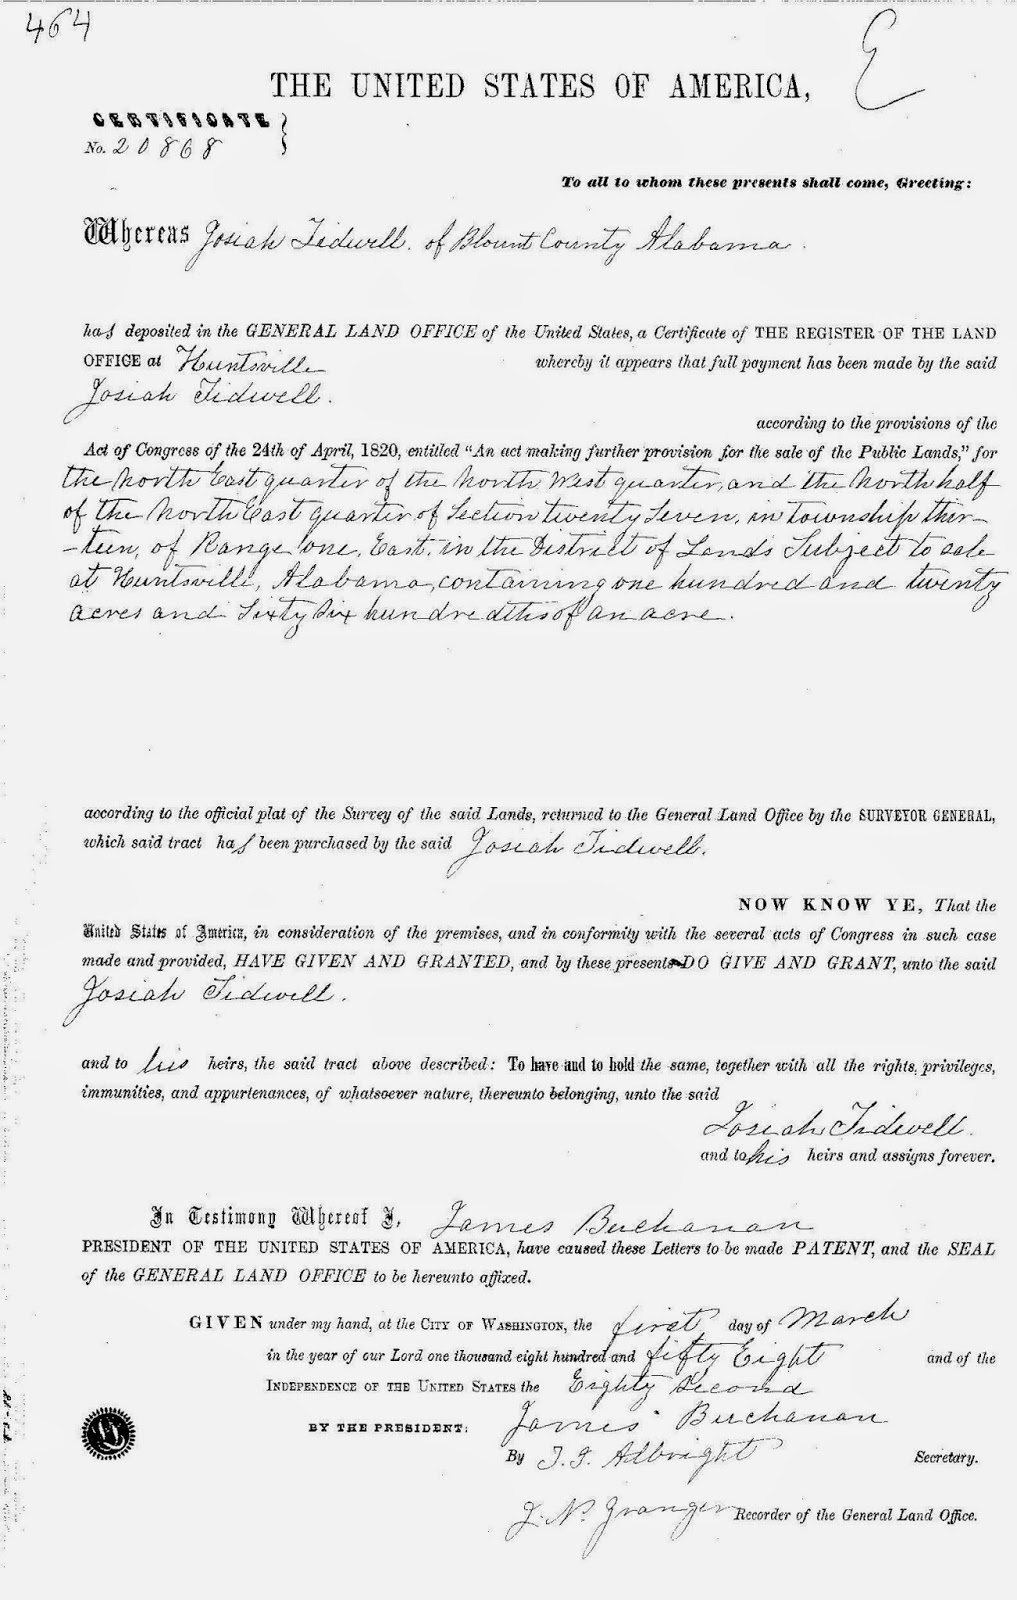 464
E
THE UNITED STATES OF AMERICA,
CERTIFICATE
No. 20868
To all to whom these presents shall come, Greeting:
Whereas Josiah Tidwell. of Blount County Alabama.
has deposited in the GENERAL LAND OFFICE of the United States, a Certificate of THE REGISTER OF THE LAND
OFFICE at Huntsville whereby it appears that full payment has been made by the said
Josiah Tidwell.
according to the provisions of the
Act of Congress of the 24th of April, 1820, entitled "An act making further provision for the sale of the Public Lands," for
the North East quarter of the North West quarter, and the North half
of the North East quarter of Section twenty Seven, in township thir-
-teen, of Range one, East, in the District of Lands Subject to sale
at Huntsville, Alabama, containing one hundred and twenty
acres and Sixty Six hundredths of an acre.
according to the official plat of the Survey of the said Lands, returned to the General Land Office by the SURVEYOR GENERAL,
which said tract has been purchased by the said Josiah Tidwell.
NOW KNOW YE, That the
United States of America, in consideration of the premises, and in conformity with the several acts of Congress in such case
made and provided, HAVE GIVEN AND GRANTED, and by these presents DO GIVE AND GRANT, unto the said
Josiah Tidwell.
and to his heirs, the said tract above described: To have and to hold the same, together with all the rights, privileges,
immunities, and appurtenances, of whatsoever nature, thereunto belonging, unto the said
Josiah Tidwell.
and to his heirs and assigns forever.
In Testimony Whereof I, James Buchanan
PRESIDENT OF THE UNITED STATES OF AMERICA, have caused these Letters to be made PATENT, and the SEAL
of the GENERAL LAND OFFICE to be hereunto affixed.
GIVEN under my hand, at the CITY OF WASHINGTON, the first day of March
in the year of our Lord one thousand eight hundred and fifty Eight and of the
INDEPENDENCE OF THE UNITED STATES the Eighty Second
BY THE PRESIDENT: James Buchanan
By T. J. Albright Secretary.
J. N. Granger Recorder of the General Land Office.